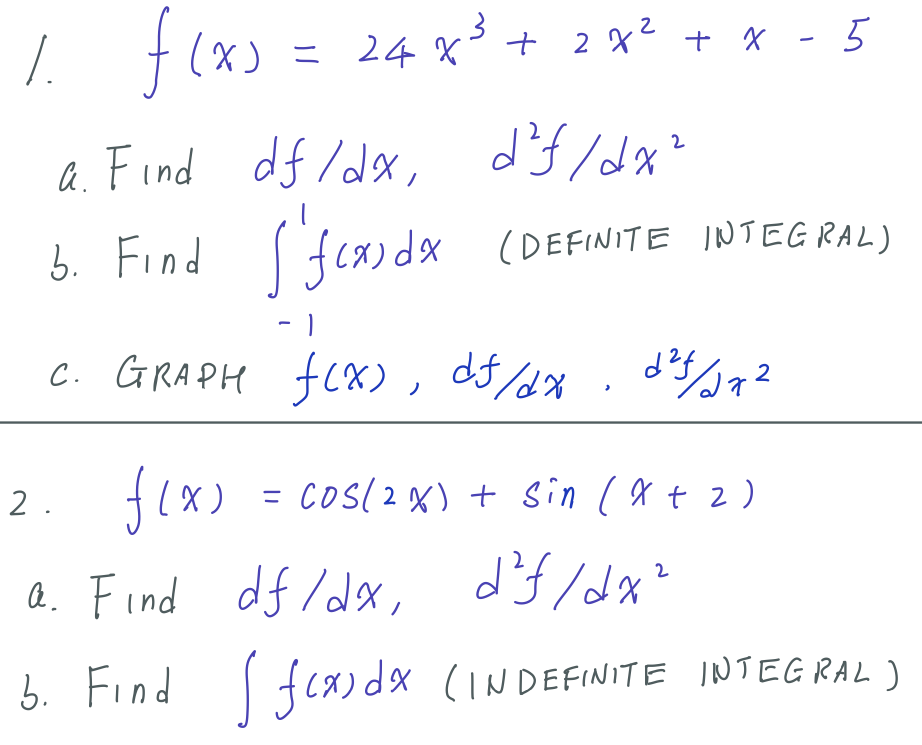 1. f(x) = 24x³ + 2x² + x - 5
a. Find df/dx, d²f/dx²
b. Find ∫₋₁¹ f(x)dx (DEFINITE INTEGRAL)
c. GRAPH f(x), df/dx, d²f/dx²
2. f(x) = cos(2x) + sin(x+2)
a. Find df/dx, d²f/dx²
b. Find ∫ f(x)dx (INDEFINITE INTEGRAL)